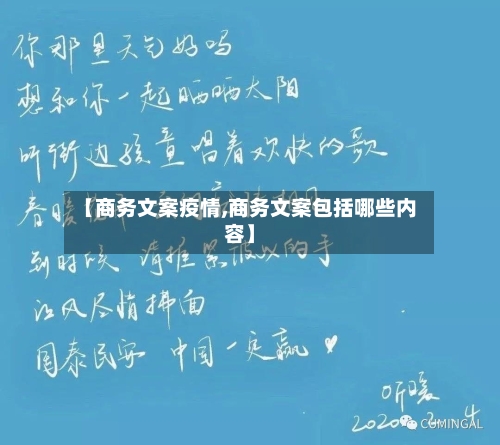 你那里天气好吗
想和你一起晒晒太阳
听街边孩童唱着欢快的歌
春暖
【商务文案疫情,商务文案包括哪些内
容】
到时候 请握紧彼此的手
江风尽情拂面
国泰民安 中国一定赢
听暖
2020.2.4
CUMINGAL